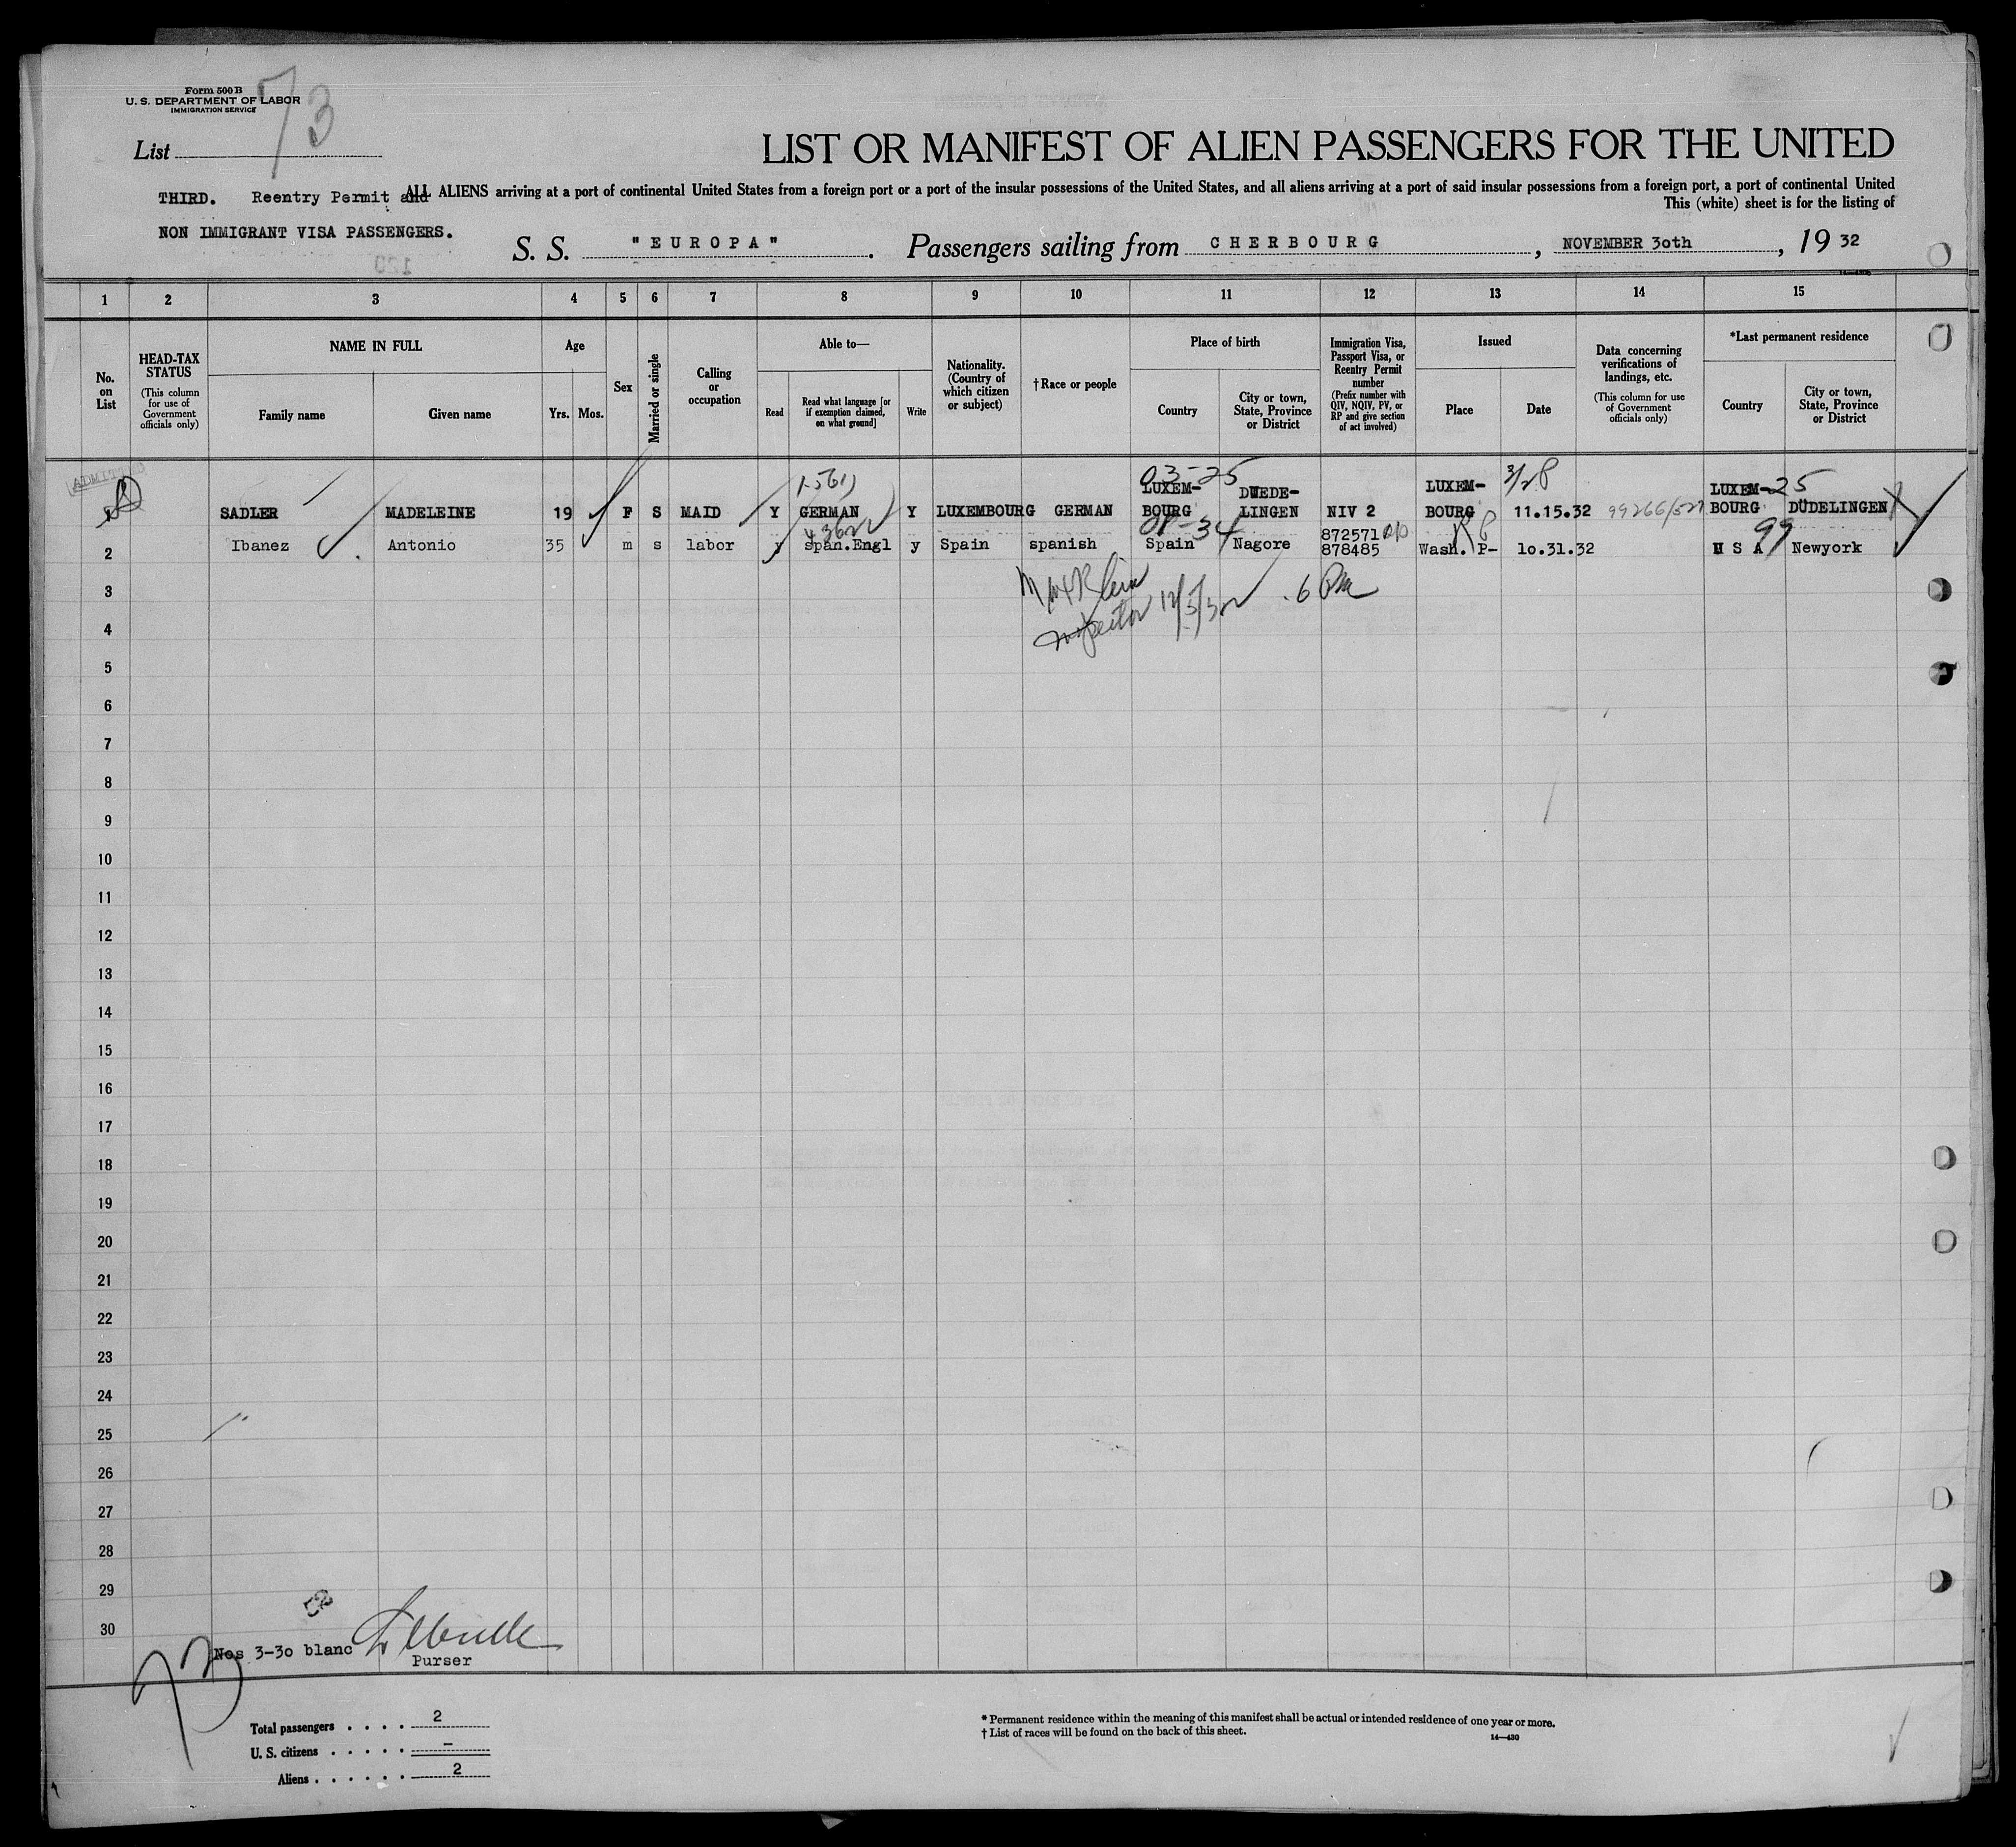 Form 500 B
U. S. DEPARTMENT OF LABOR
IMMIGRATION SERVICE
73
List
LIST OR MANIFEST OF ALIEN PASSENGERS FOR THE UNITED
THIRD. Reentry Permit and
ALL ALIENS arriving at a port of continental United States from a foreign port or a port of the insular possessions of the United States, and all aliens arriving at a port of said insular possessions from a foreign port, a port of continental United
This (white) sheet is for the listing of
NON IMMIGRANT VISA PASSENGERS.
S. S. "EUROPA". Passengers sailing from CHERBOURG, NOVEMBER 30th, 19 32
1 2 3 4 5 6 7 8 9 10 11 12 13 14 15
No. on List
HEAD-TAX STATUS
(This column for use of Government officials only)
NAME IN FULL
Family name
Given name
Age
Yrs.
Mos.
Sex
Married or single
Calling or occupation
Able to—
Read
Read what language [or if exemption claimed, on what ground]
Write
Nationality. (Country of which citizen or subject)
†Race or people
Place of birth
Country
City or town, State, Province or District
Immigration Visa, Passport Visa, or Reentry Permit number
(Prefix number with QIV, NQIV, PV, or RP and give section of act involved)
Issued
Place
Date
Data concerning verifications of landings, etc.
(This column for use of Government officials only)
*Last permanent residence
Country
City or town, State, Province or District
ADMITTED
03-25 3/28 25
1 SADLER MADELEINE 19 F S MAID Y GERMAN Y LUXEMBOURG GERMAN LUXEM-BOURG DUEDE-LINGEN NIV 2 LUXEM-BOURG 11.15.32 99266/527 LUXEM-BOURG DÜDELINGEN
43622 08-34 RP 99
2 Ibanez Antonio 35 m s labor y span.Engl y Spain spanish Spain Nagore 872571 878485 Wash. P- 10.31.32 U S A Newyork
Inspector 12/5/32 6 PM
3
4
5
6
7
8
9
10
11
12
13
14
15
16
17
18
19
20
21
22
23
24
25
26
27
28
29
30
Nos 3-30 blanc
Purser
73
Total passengers . . . . 2
U. S. citizens . . . . . –
Aliens . . . . . . 2
* Permanent residence within the meaning of this manifest shall be actual or intended residence of one year or more.
† List of races will be found on the back of this sheet.
14—430